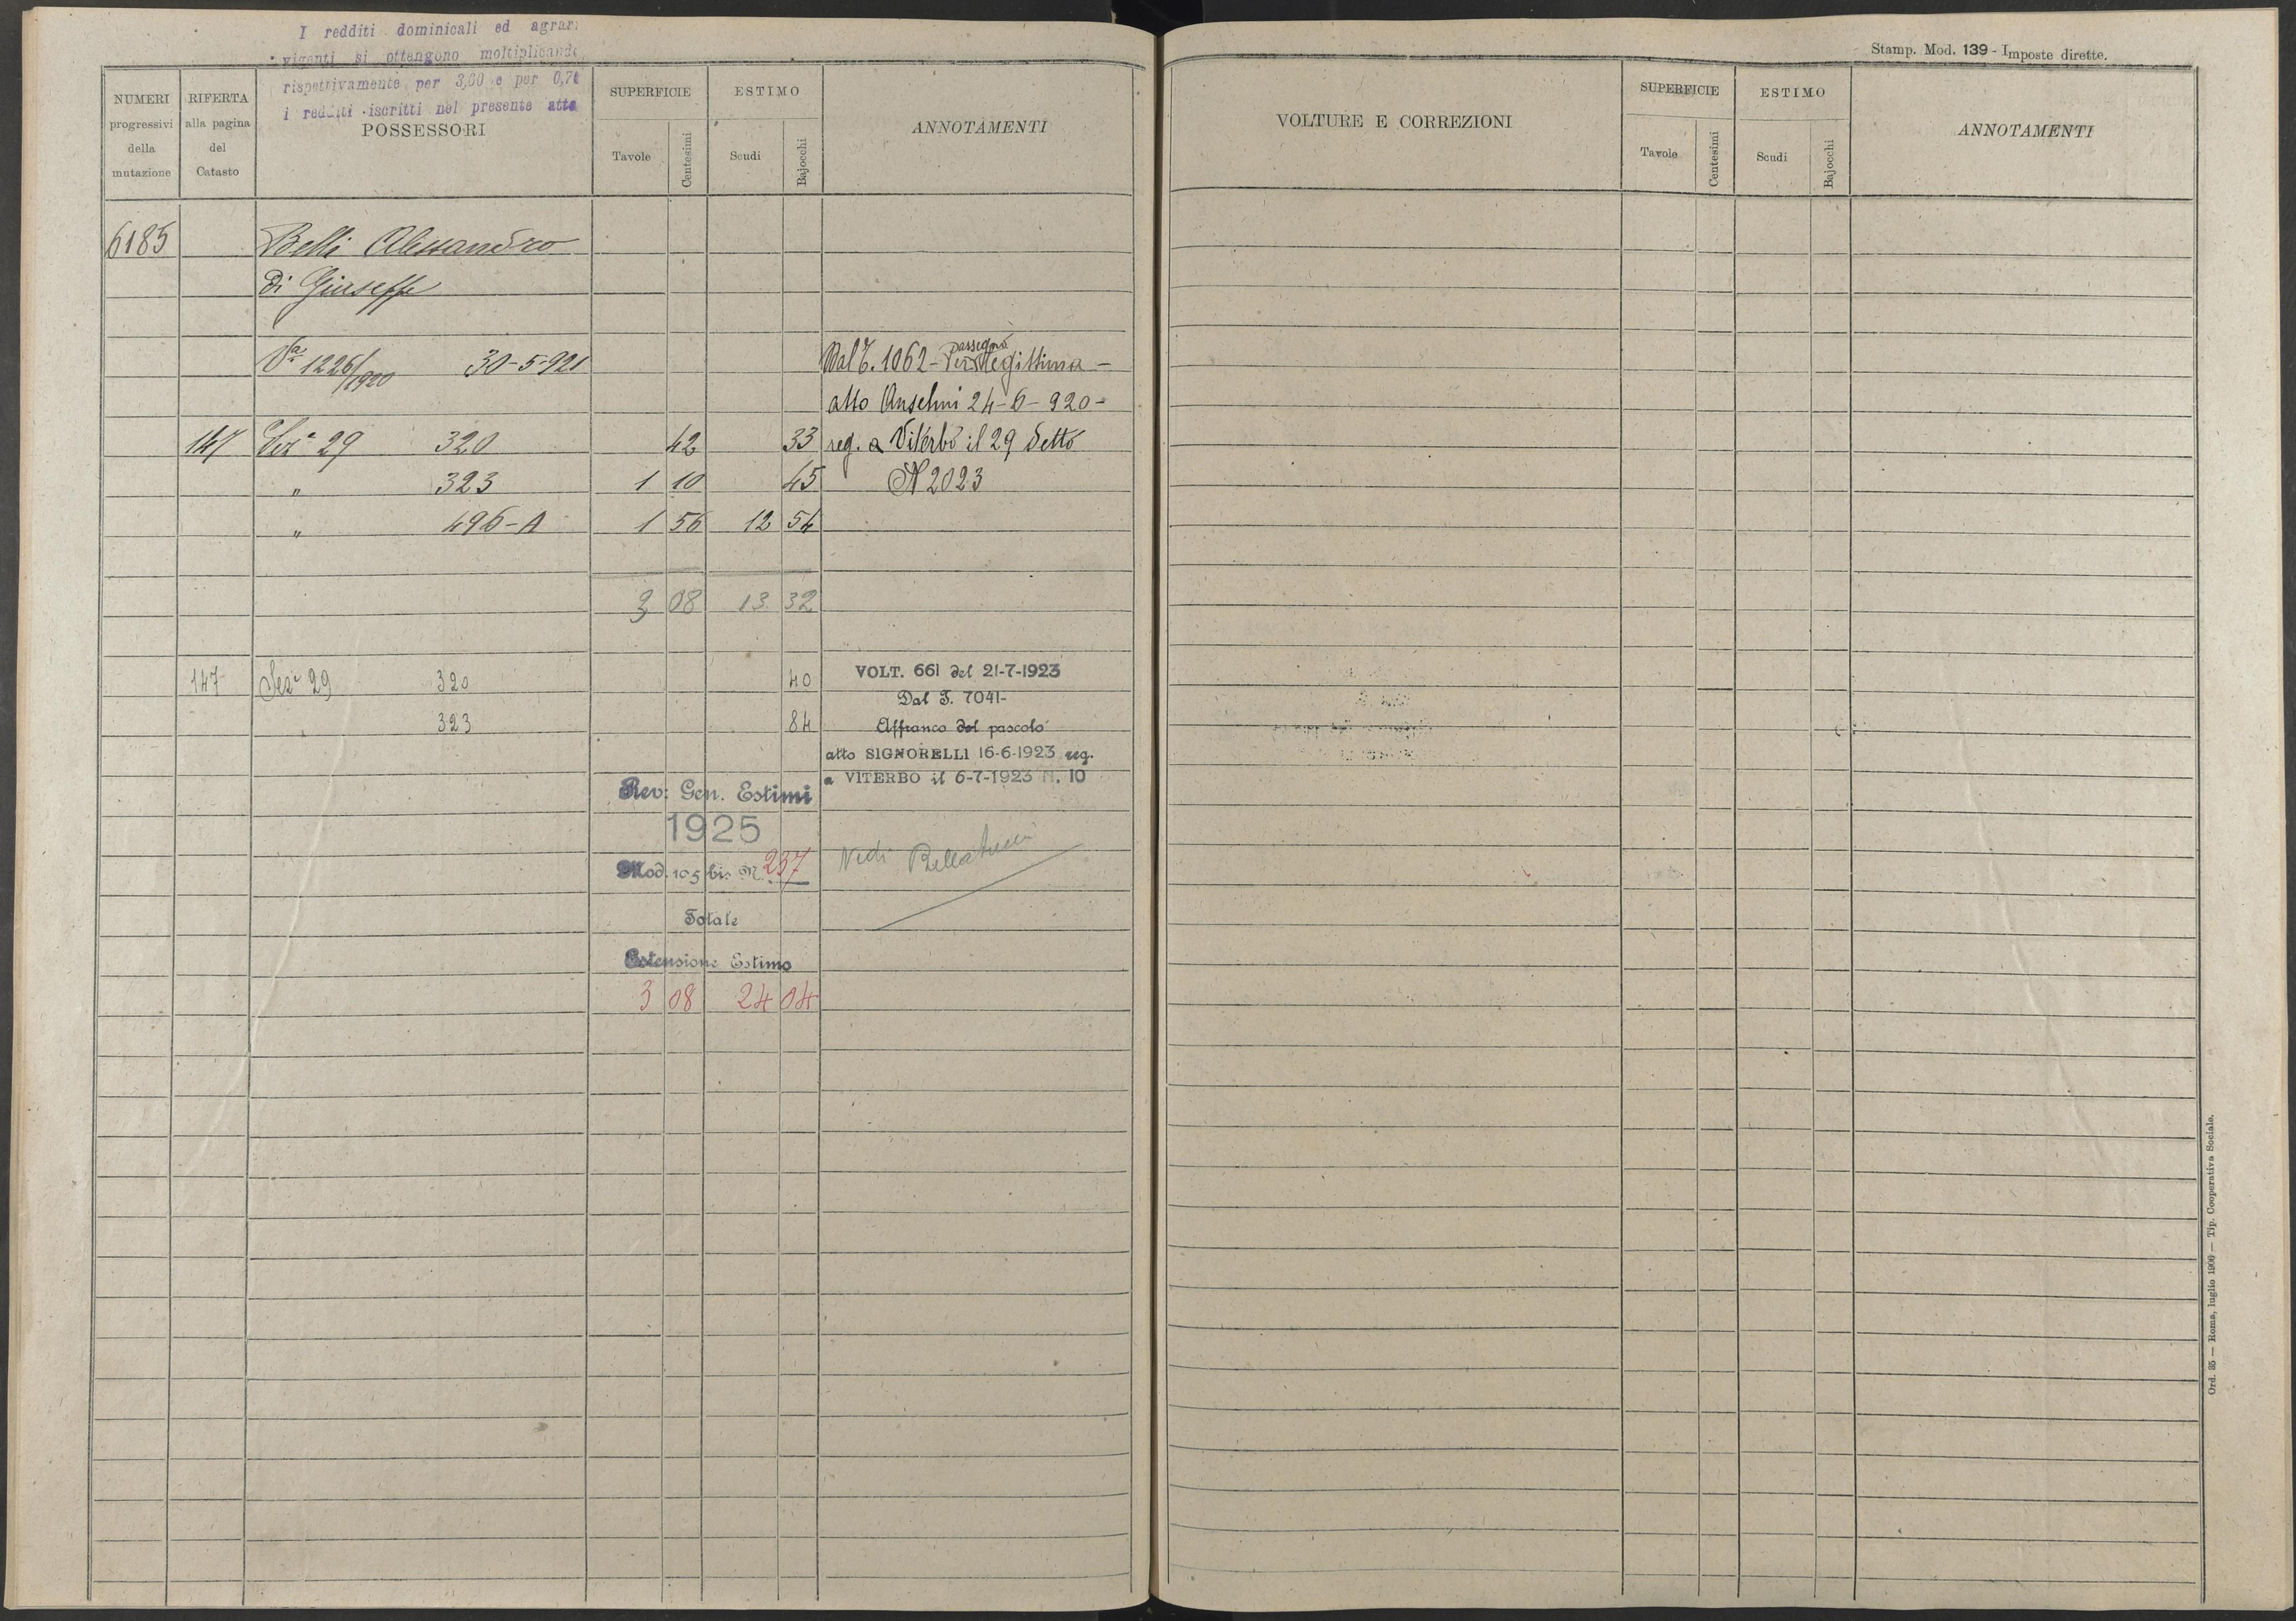 I redditi dominicali ed agrari
vigenti si ottengono moltiplicando
rispettivamente per 3,60 e per 0,76
i redditi iscritti nel presente atto
NUMERI progressivi della mutazione
RIFERTA alla pagina del Catasto
POSSESSORI
SUPERFICIE
Tavole Centesimi
ESTIMO
Scudi Bajocchi
ANNOTAMENTI
6185 Belli Alessandro
di Giuseppe
Va 1226/1920 30-5-921 Dal T. 1062 - passegno legittima -
atto Anselmi 24-6-920-
147 Sez.e 29 320 42 33 reg. a Viterbo il 29 detto
" 323 1 10 45 N 2023
" 496-A 1 56 12 54
3 08 13 32
147 Sez.e 29 320 40 VOLT. 661 del 21-7-1923
Dal T. 7041-
323 84 Affranco del pascolo
atto SIGNORELLI 16-6-1923 reg.
a VITERBO il 6-7-1923 N. 10
Rev: Gen. Estimi
1925
Mod. 105 bis N. 237
Vedi
Totale
Estensione Estimo
3 08 24 04
Stamp. Mod. 139 - Imposte dirette.
VOLTURE E CORREZIONI
SUPERFICIE
Tavole Centesimi
ESTIMO
Scudi Bajocchi
ANNOTAMENTI
Ord. 35 — Roma, luglio 1909 — Tip. Cooperativa Sociale.